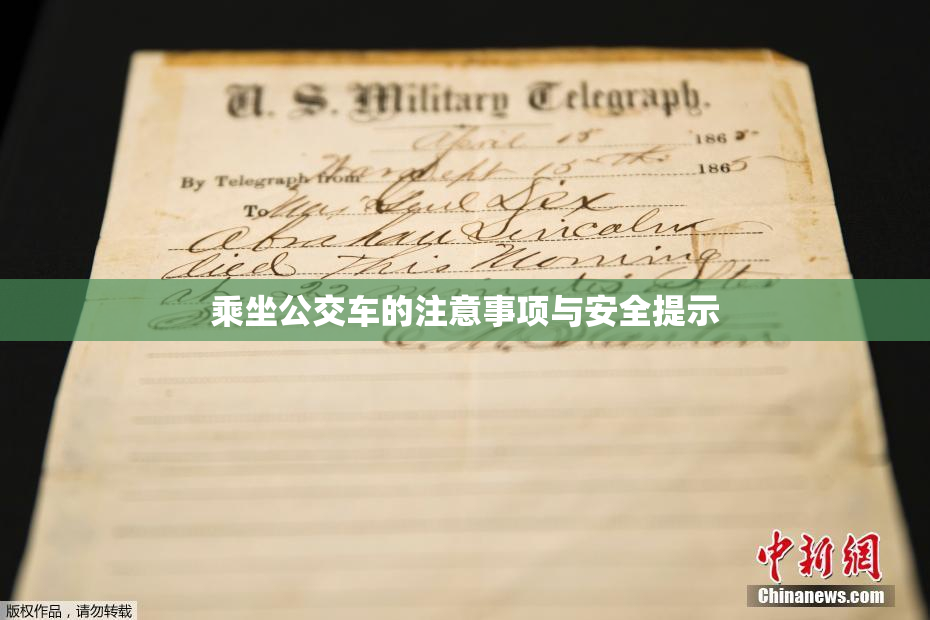 U. S. Military Telegraph.
April 15 1865
By Telegraph from War Dept 15th 1865
To Maj Genl Dix
Abraham Lincoln
died This Morning
at 22 minutes after
乘坐公交车的注意事项与安全提示
E. M. Stanton
中新网
Chinanews.com
版权作品，请勿转载